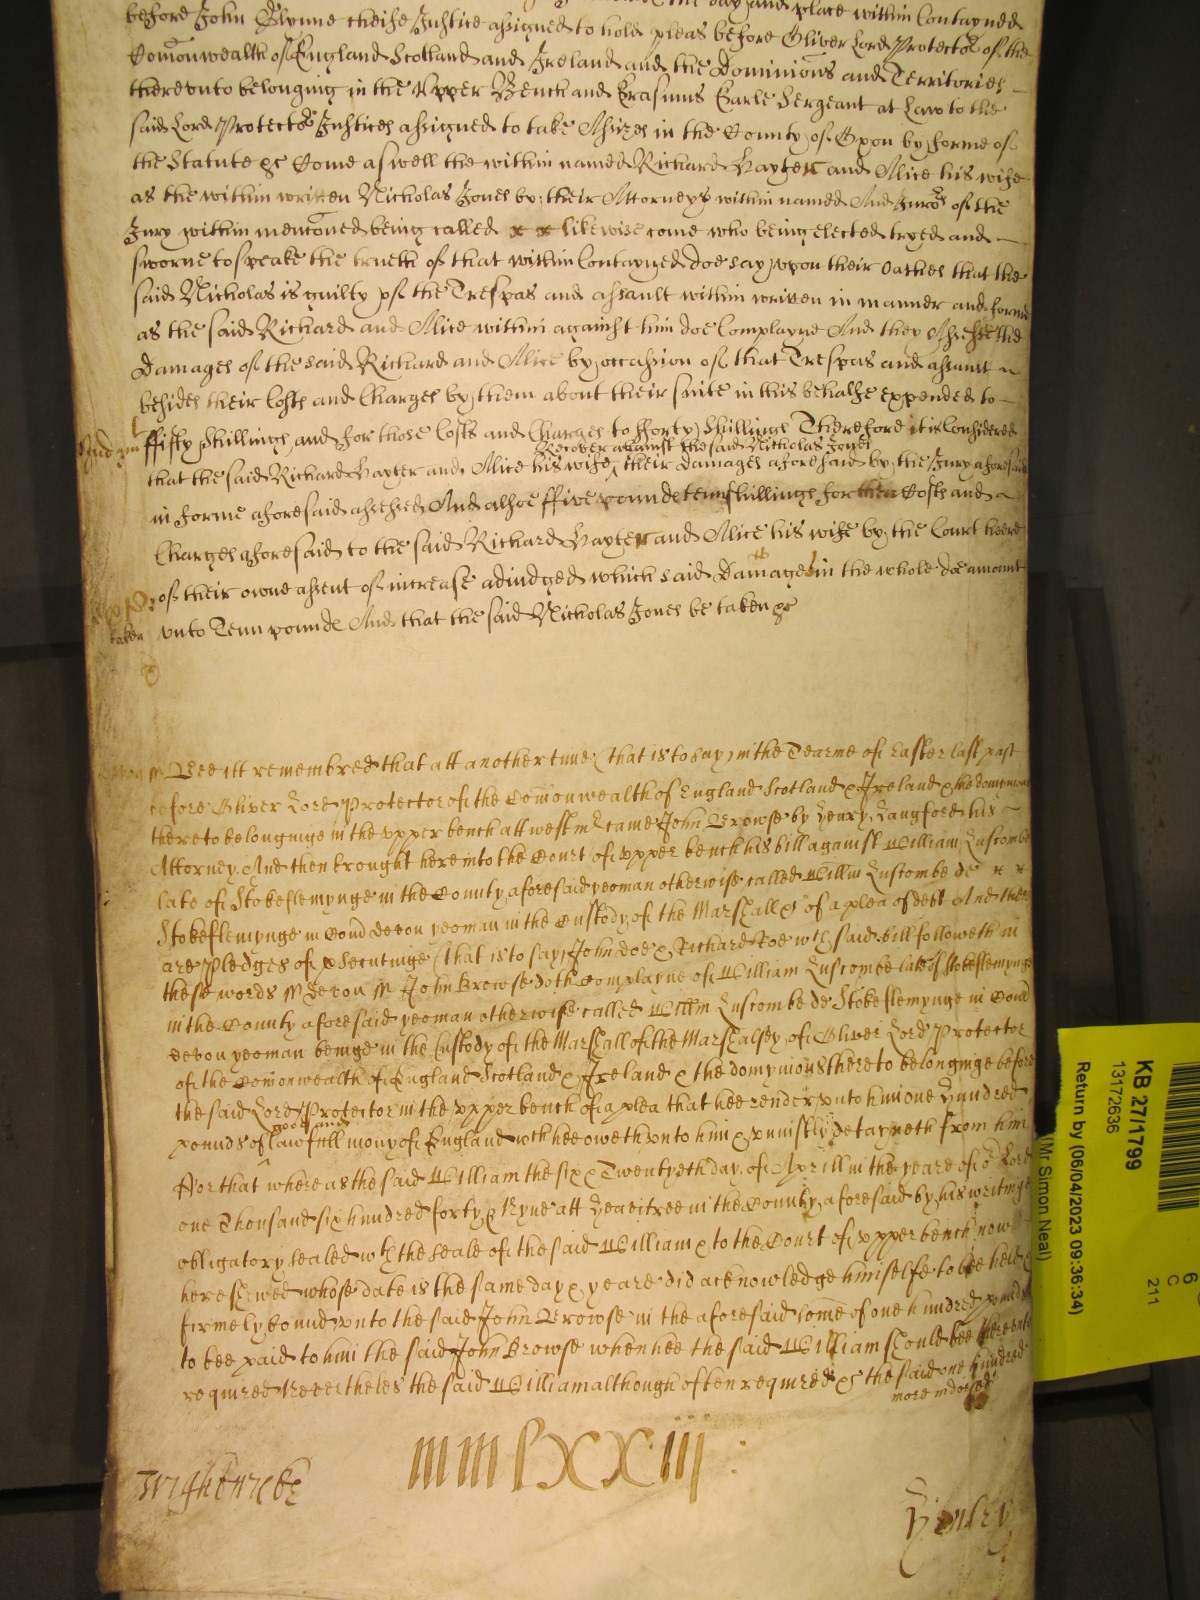 the day and place within Contayned
before John Glynne cheife Justice assigned to hold pleas before Oliver Lord Protector of the
Comonwealth of England Scotland and Ireland and the Dominions and Territories
therevnto belonging in the Vpper Bench and Erasmus Earle Sergeant at Law to the
said Lord Protector Justices assigned to take Assizes in the County of by forme of
the Statute &c Come aswell the within named Richard Baxter and Alice his wife
as the within written Nicholas Jones by their Attorneys within named And Juros of the
Jury within menconed being called x x likewise come who being elected tryed and
sworne to speake the trueth of that within Contayned doe say vpon their oathes that the
said Nicholas is guilty of the Trespas and assault within written in manner and forme
as the said Richard and Alice within against him doe Complayne And they Assesse the
Damages of the said Richard and Alice by occassion of that Trespas and assault
besides their Costs and Charges by them about their suite in this behalfe expended to
ffifty shillings and for those Costs and Charges to fforty shillings Therefore it is Considered
Recover against the said Nicholas Jones
that the said Richard Baxter and Alice his wife their Damages aforesaid by the Jury aforesaid
in forme aforesaid assessed And alsoe ffive pounde tenn shillings for their Costs and
Charges aforesaid to the said Richard Baxter and Alice his wife by the Court heere
of their owne assent of increase adiudged which said Damages in the whole doe amount
taken
vnto Tenn pounde And that the said Nicholas Jones be taken &c
Bee itt remembred that att another time (that is to say) in the Tearme of Easter last past
before Oliver Lord Protector of the Comonwealth of England Scotland & Ireland & the dominions
thereto belonginge in the vpper bench att westmr came John Browse by Henry Langford his
Attorney And then brought here into the Court of vpper bench his bill against William Luscombe
late of Stokeflemynge in the County aforesaid yeoman otherwise called Willm Luscombe de x x
Stokeflemynge in Com devon yeoman in the Custody of the Marshall &c of a plea of debt And there
are pledges of psecutinge (that is to say) John doe & Richard Roe wch said bill followeth in
these words ss Devon ss John Browse doth Complayne of William Luscombe late of Stokeflemynge
in the County aforesaid yeoman otherwise called Willm Luscombe de Stokeflemynge in Com
devon yeoman beinge in the Custody of the Marshall of the Marshalsey of Oliver Lord Protector
of the Comonwealth of England Scotland & Ireland & the domynions thereto belonginge before
the said Lord Protector in the vpper bench of a plea that hee render vnto him one Hundred
good and
pounds of lawfull mony of England wch hee oweth vnto him & vniustly detayneth from him
For that whereas the said William the six & Twentyeth day of Aprill in the yeare of or Lord
one Thousand six hundred forty & Nyne att Heavitree in the County aforesaid by his writinge
obligatory sealed wth the seale of the said William & to the Court of vpper bench now
here shewed whose date is the same day & yeare did acknowledge himselfe to bee held &
firmely bound vnto the said John Browse in the aforesaid some of one hundred pounds
to bee paid to him the said John Browse when hee the said William should bee thereunto
required Neverthelesse the said William although often required &c the said one hundred
more indorsed
Wrightwicke
MMLXXIII
Henley
KB 27/1799
13172636
Return by (06/04/2023 09:36:34)
(Mr Simon Neal)
6
C
211